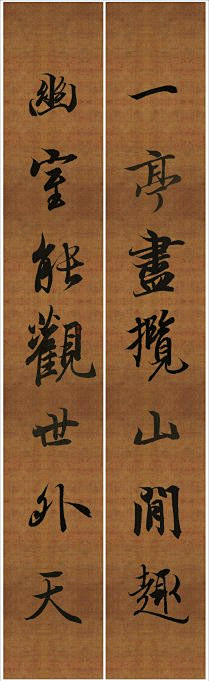 一亭盡攬山間趣
幽室能觀世外天